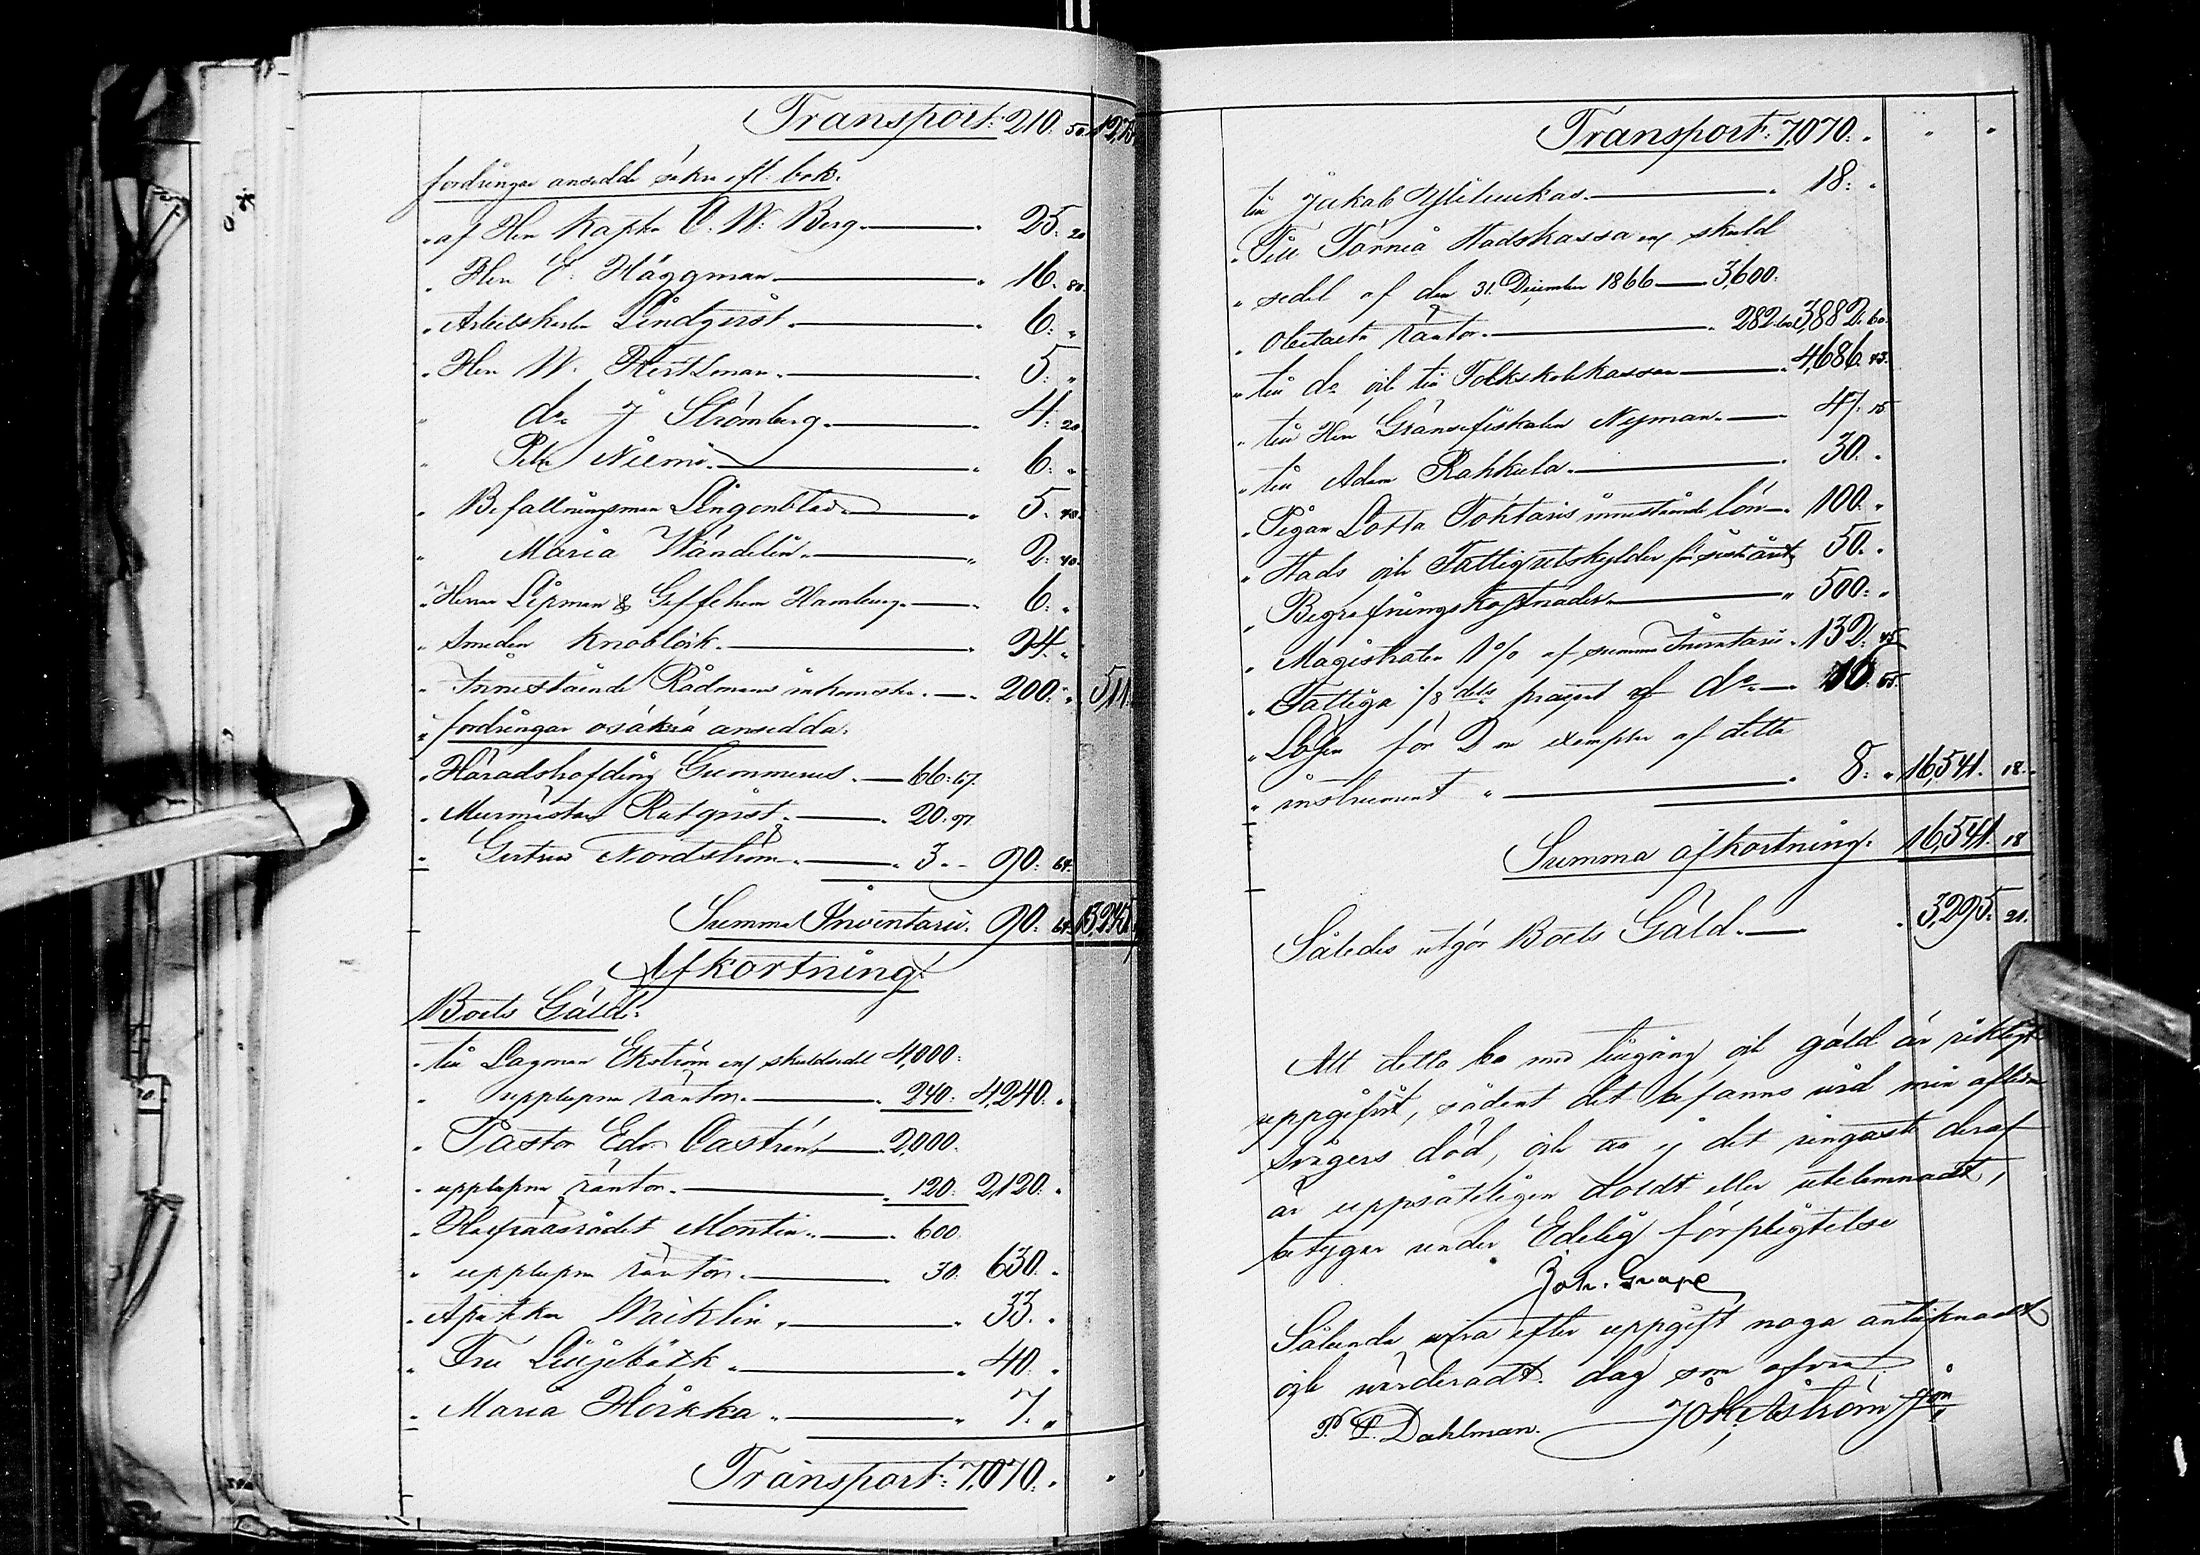 Transport: 210. 50. 12,73
fordringar ansedde säkra efl. bok.
" af Herr Kapten C. W. Berg. — " 25. 20
" Herr E. Häggman — " 16. 80.
" Arbetskarlen Lindqvist. — " 6. "
" Herr W. — " 5. "
" do J Strömberg. — " 4. 20
" Petter Niemi. — " 6. "
" Befallningsman Lingonblad — " 5. 40.
" Maria Wändelin. — " 2. 40.
" Herrar Lipman & Geffchen Hamburg. — " 6. "
" Smeden Knoblock. — " 24. "
" Innestående Rådmans inkomster. — " 200. " 511.
" fordringar osäkra ansedda.
" Häradshöfding Gummerus. — 66: 67.
" Murmästar Rutqvist. — " 20. 97.
" Gertrud Nordström. — " 3. - 90. 64.
Summa Inventarii. 90. 64. 13,245
Afkortning.
Boets Gäld:
" till Lagman Ekström enl skuldsedel 4,000.
" upplupna räntor. — " 240. 4,240. "
" Pastor Edv. Castrén — 2,000.
" upplupna räntor. — 120. 2,120. "
" Hofrådsrådet Montin. — 600
" upplupna räntor. — 30. 630. "
" Apotekar Wäcklin. — " 33. "
" Fru Liljebäck. — " 40. "
" Maria Hörkka. — " 7. "
Transport: 7,070. "
Transport: 7,070. "
till Jakob — " 18. "
" Till Torneå Stadskassa enl skuld
" sedel af den 31. December 1866 — 3,600.
" Obetalta räntor. — " 282. 60 3,882. 60.
" till do och till Folkskolekassan — " 4,686. 43.
" till Herr Gränsefiskalen Nyman. — " 47. 15
" till Adam Rahkula. — " 30. "
" Pigan Lotta Tohtaris innestående lön — " 100. "
" Stads och Fattigutskylder för sistl året 50. "
" Begrafningskostnader — " 500. "
" Magistraten 1% af summa Inventarii " 132. 45
" Fattiga 1/8 dels procent af do — 16. 55.
" Lösen för 2 ne exemplar af detta
" instrument " — " 8. " 16,541. 18.
Summa afkortning. 16,541. 18
Således utgör Boets Gäld. — " 3,295. 21.
Att detta bo med tillgång och gäld är riktigt
uppgifvit, sådant det befanns vid min aflidne
Svågers död, och att ej det ringaste deraf
är uppsåteligen doldt eller utelemnadt,
betygar under Edelig förpligtelse
Joh. Grape
Sålunda vara efter uppgift noga antecknadt
och värderadt dag som ofvan
P. P. Dahlman. Joh. Åström Jon